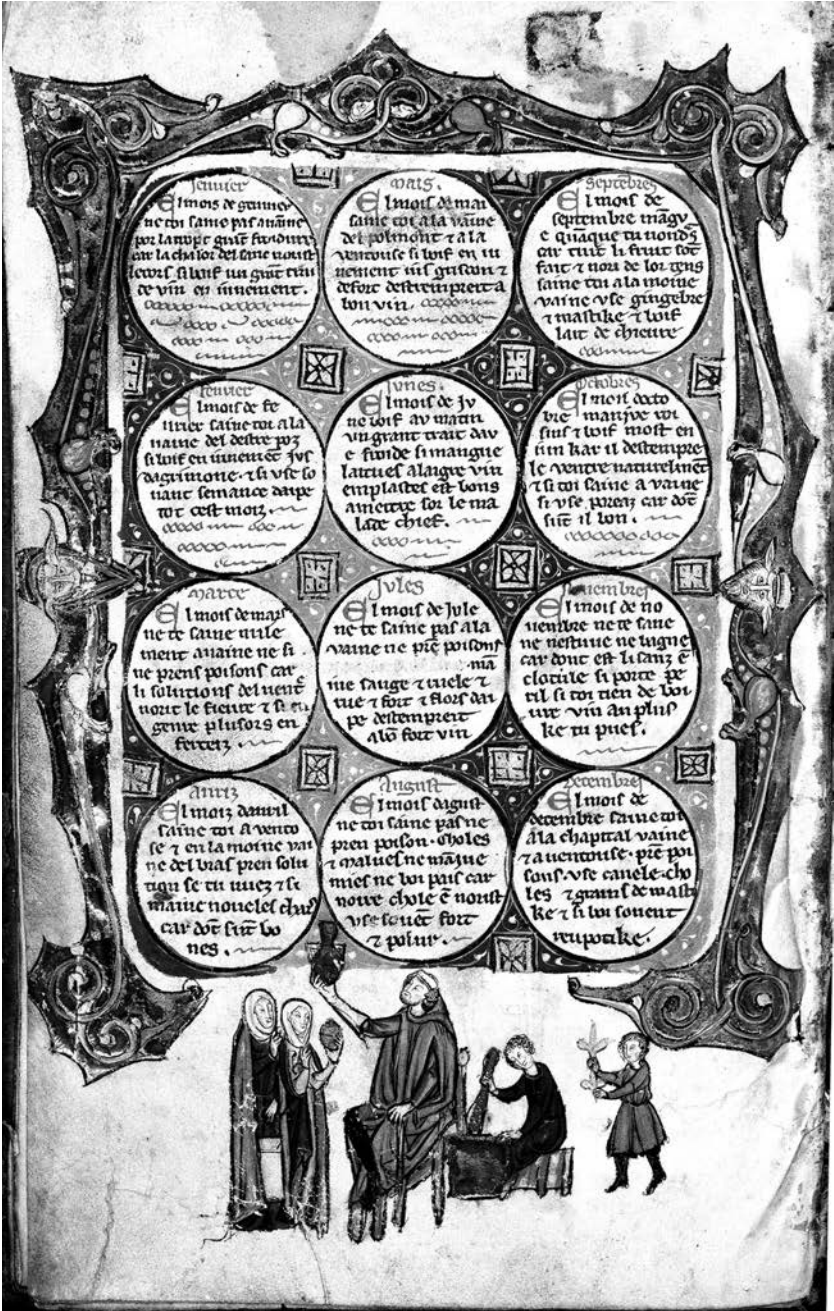 Jenvier
El mois de genvier
ne toi saine pas
por la
car la chalor del sanc
si boif un grant
de vin en iunement.
Fevrier
El mois de fe
vrier saine toi a la
vaine del destre poz
si boif en iunement jus
dagrimone. ⁊ si use so
vant semance dape
tot cest moiz.
Marce
El mois de mars
ne te saine nile
ment a vaine ne si
ne prens poisons car
li solutions del
norit le fievre ⁊ si en
genre plusors en
Avriz
El moiz davril
saine toi a vento
se ⁊ en la moine vai
ne del bras pren solu
tion se tu ⁊ si
noveles chars
car dōt sūt bo
nes.
Mais.
El mois de mai
saine toi a la vaine
del polmont ⁊ a la
ventouse si boif en iu
nement ius ⁊
defort destempreit a
bon vin.
Junes.
El mois de Ju
ne boif au matin
un grant trait dav
e froide si mangue
laitues a laigre vin
emplastes est bons
a metre sor le ma
lade chief.
Jules
El mois de Jule
ne te saine pas a la
vaine ne prē poisons
ma
iue sauge ⁊
rue ⁊ fort ⁊ flors dai
pe destempreit
a bō fort vin
August
El mois dagust
ne toi saine pas ne
pren poison. Choles
⁊ malves ne māiue
mies ne boi pas car
noire chole ē norist
use sovēt fort
⁊ poliur.
Septembres
El mois de
septembre māgv
e quāque tu
car tuit li fruit sōt
fait ⁊ de lor tens
saine toi a la moine
vaine use gingebre
⁊ mastike ⁊ boif
lait de chievre
Octobres
El mois docto
bre maniue roi
sins ⁊ boif most en
vin kar il destempre
le ventre naturelmēt
⁊ si toi saine a vaine
si use poreaz car dōt
sūt il bon.
Novembres
El mois de no
vembre ne te saine
ne nestuve ne bagne
car dont est li sanz ē
clotule si porte pe
ril si toi tien de boi
vre vin an plus
ke tu pues.
Decembres
El mois de
decembre saine toi
a la chapital vaine
⁊ a ventouse. prē poi
sons. use canele. cho
les ⁊ grains de masti
ke ⁊ si boi sovent
reupotike.